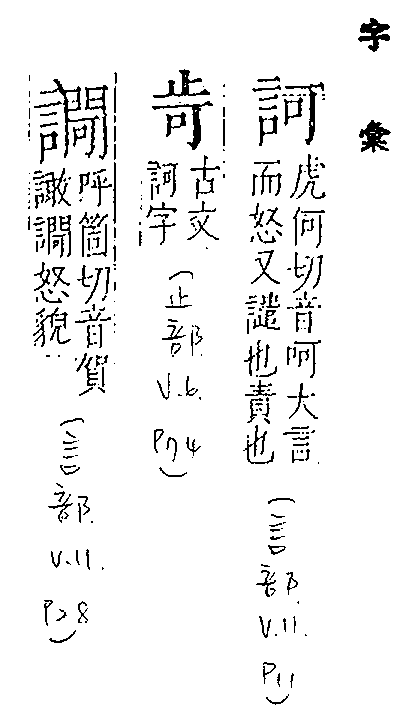 字彙
訶
虎何切音呵大言
而怒又譴也責也
(言部 V.11. P11)
古文
訶字
(止部 V.6. P74)
呼箇切音賀
怒貌
(言部 V.11. P28)